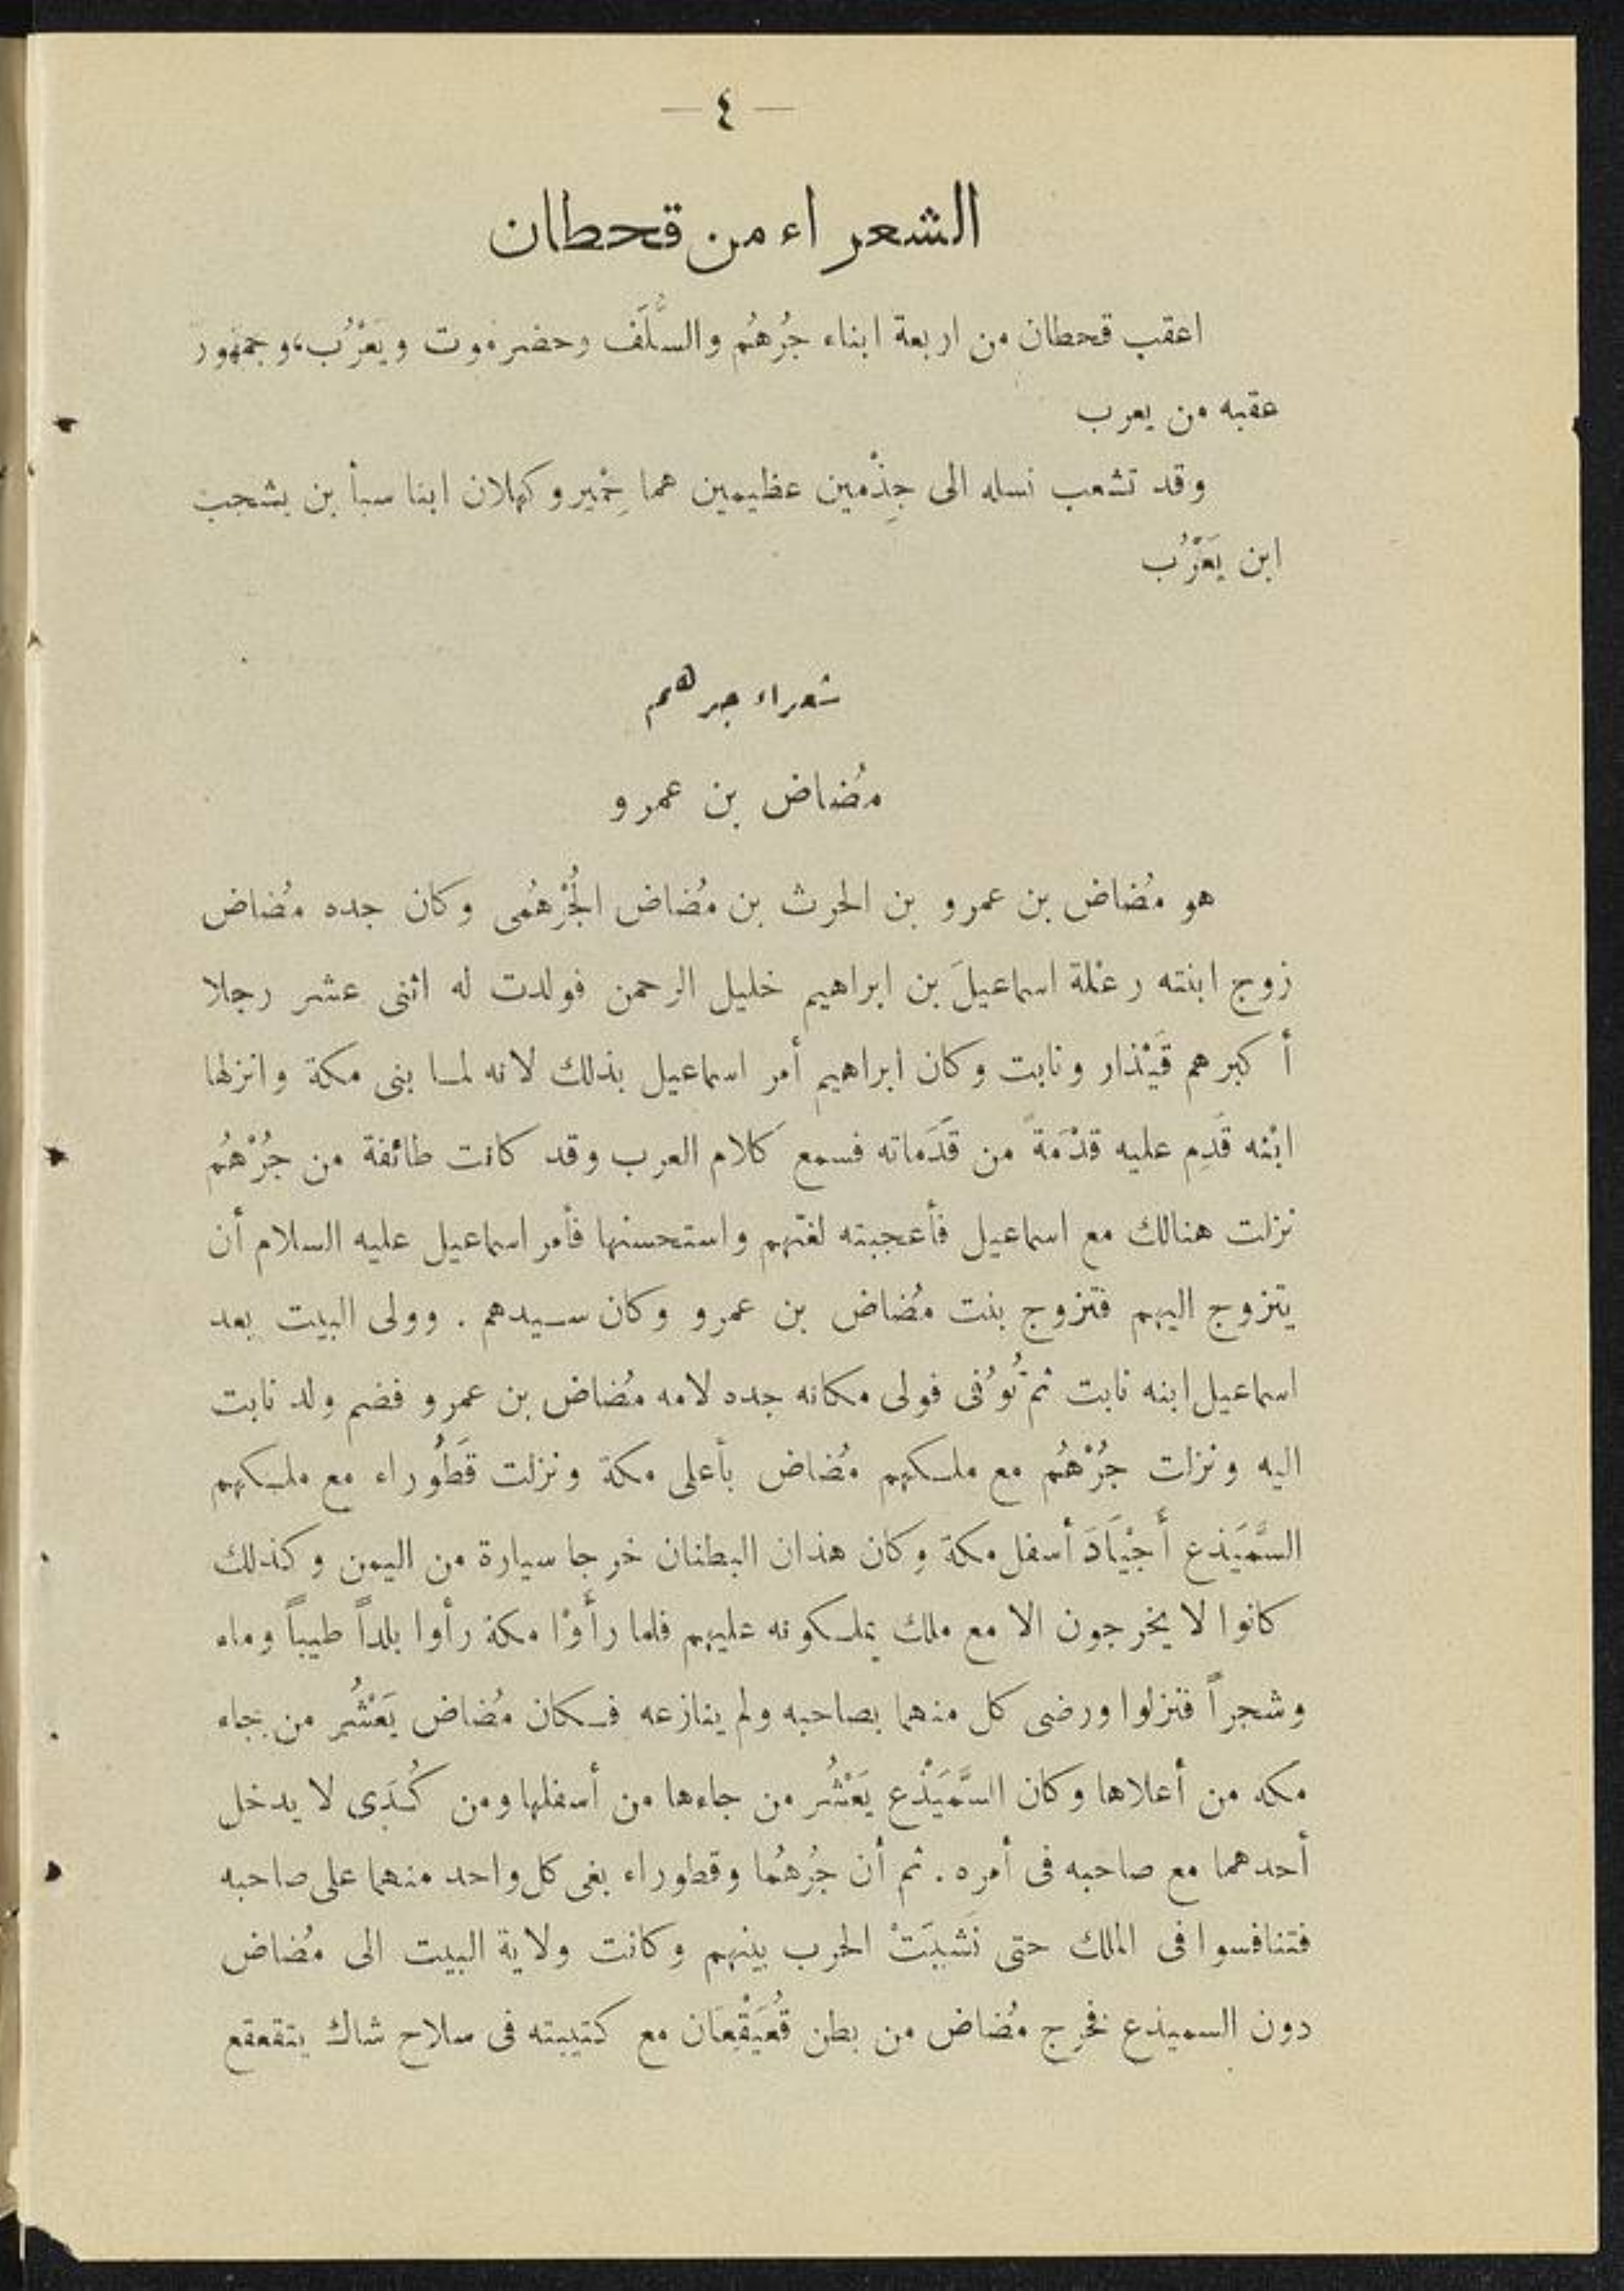 — ٤ —
الشعراء من قحطان
اعقب قحطان من اربعة ابناء جُرهُم والسُّلَف وحضرموت ويَعْرُب، وجمهور
عقبه من يعرب
وقد تشعب نسله الى جِذْمين عظيمين هما حِمْير وكهلان ابنا سبأ بن يشجب
ابن يَعْرُب
شعراء جرهم
مُضاض بن عمرو
هو مُضاض بن عمرو بن الحرث بن مُضاض الجُرْهُمى وكان جده مُضاض
زوج ابنته رعْلة اسماعيلَ بن ابراهيم خليل الرحمن فولدت له اثنى عشر رجلا
أكبرهم قَيْذار ونابت وكان ابراهيم أمر اسماعيل بذلك لانه لما بنى مكة وانزلها
ابْنه قَدِم عليه قَدْمَةً من قَدَماته فسمع كلام العرب وقد كانت طائفة من جُرْهُم
نزلت هنالك مع اسماعيل فأعجبته لغتهم واستحسنها فأمر اسماعيل عليه السلام أن
يتزوج اليهم فتزوج بنت مُضاض بن عمرو وكان سيدهم . وولى البيت بعد
اسماعيل ابنه نابت ثم تُوُفى فولى مكانه جده لامه مُضاض بن عمرو فضم ولد نابت
اليه ونزلت جُرْهُم مع ملكهم مُضاض بأعلى مكة ونزلت قَطُوراء مع ملكهم
السَّمَيْذع أَجْيَادَ أسفل مكة وكان هذان البطنان خرجا سيارة من اليمن وكذلك
كانوا لا يخرجون الا مع ملك يملكونه عليهم فلما رأَوْا مكة رأوا بلداً طيباً وماء
وشجراً فنزلوا ورضى كل منهما بصاحبه ولم ينازعه فكان مُضاض يَعْشُر من جاء
مكه من أعلاها وكان السَّمَيْذع يَعْشُر من جاءها من أسفلها ومن كُدَى لا يدخل
أحدهما مع صاحبه فى أمره . ثم أن جُرهُما وقطوراء بغى كل واحد منهما على صاحبه
فتنافسوا فى الملك حتى نَشبَتْ الحرب بينهم وكانت ولاية البيت الى مُضاض
دون السميذع فخرج مُضاض من بطن قُعَيْقِعَان مع كتيبته فى سلاح شاك يتقعقع